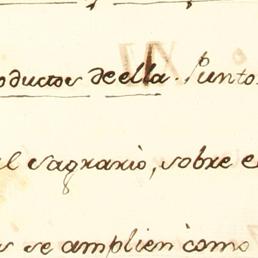 oductos de ella. Punto
el sagrario, sobre e
s se amplien como